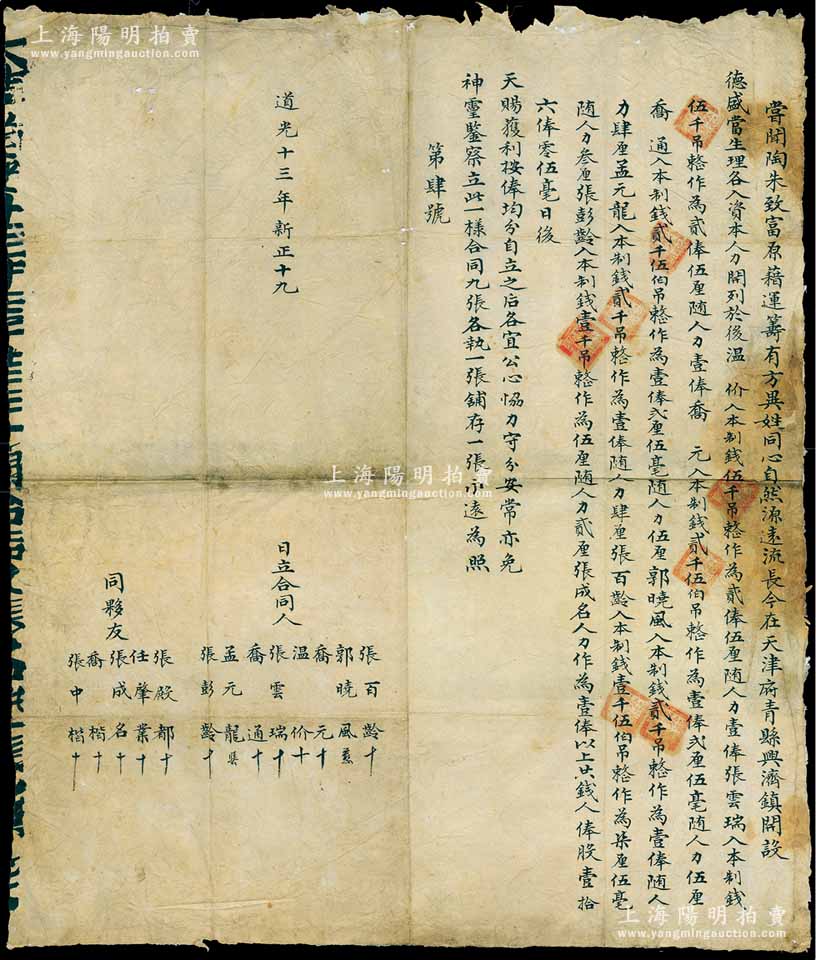 嘗聞陶朱致富原藉運籌有方異姓同心自然源遠流長今在天津府青縣興濟鎮開設
德盛當生理各入資本人力開列於後溫 价入本制錢伍千吊整作為貳俸伍厘隨人力壹俸張雲瑞入本制錢
伍千吊整作為貳俸伍厘隨人力壹俸喬 元入本制錢貳千伍伯吊整作為壹俸弍厘伍毫隨人力伍厘
喬 通入本制錢貳千伍伯吊整作為壹俸弍厘伍毫隨人力伍厘郭曉風入本制錢貳千吊整作為壹俸隨人
力肆厘孟元龍入本制錢貳千吊整作為壹俸隨人力肆厘張百齡入本制錢壹千伍伯吊整作為柒厘伍毫
隨人力叁厘張彭齡入本制錢壹千吊整作為伍厘隨人力貳厘張成名人力作為壹俸以上共錢人俸股壹拾
六俸零伍毫日後
天賜獲利按俸均分自立之后各宜公心恊力守分安常亦免
神靈鑒察立此一樣合同九張各執一張舖存一張永遠為照
第肆號
道光十三年新正十九
日立合同人
張百齡十
郭曉風
喬元十
溫价十
張雲瑞十
喬通十
孟元龍
張彭齡十
同夥友
張殿都十
任肇業十
張成名十
喬楷十
張中楷十
上海陽明拍賣
www.yangmingauction.com
上海陽明拍賣
www.yangmingauction.com
上海陽明拍賣
www.yangmingauction.com